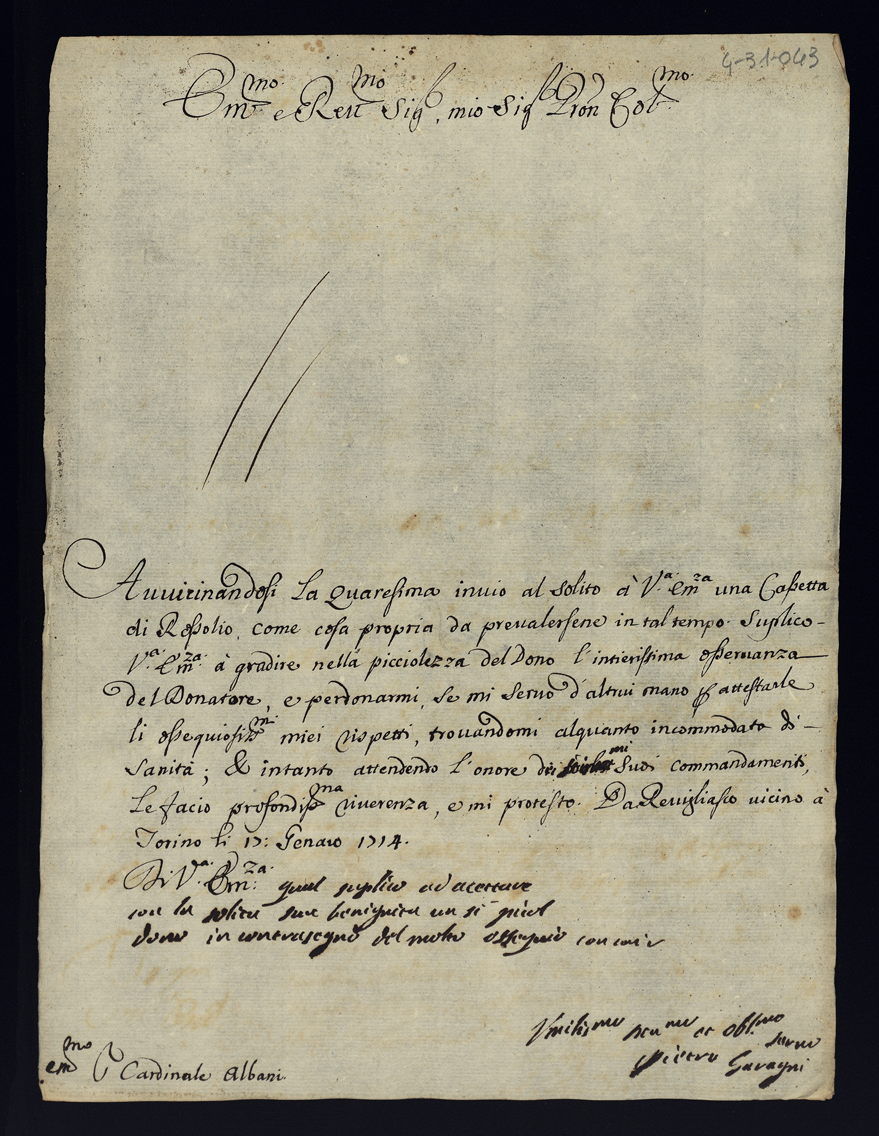 4-31-043
Em.mo e Reu.mo Sig.r, mio Sig.r Pron Col.mo
Auuicinandosi la Quaresima inuio al solito à V.a Em.za una Cassetta
di Rosolio, come cosa propria da preualersene in tal tempo. Suplico
V.a Em.za à gradire nella picciolezza del Dono l'intierissima osseruanza
del Donatore, e perdonarmi, se mi seruo d'altrui mano p attestarle
li ossequiosiss.mi miei rispetti, trouandomi alquanto incommodato di
sanità; & intanto attendendo l'onore de Suoi commandamenti,
le facio profondiss.ma riuerenza, e mi protesto. Da Reuigliasco uicino à
Torino li 17: Genaro 1714.
Di V.a Em.za qual suplico ad accettare
con la solita sua benignità un sì picol
dono in contrasegno del molto ossequio con cui
Vmiliss.mo Deu.mo et Obl.mo seruo
Pietro Garagni
Em.mo S Cardinale Albani.